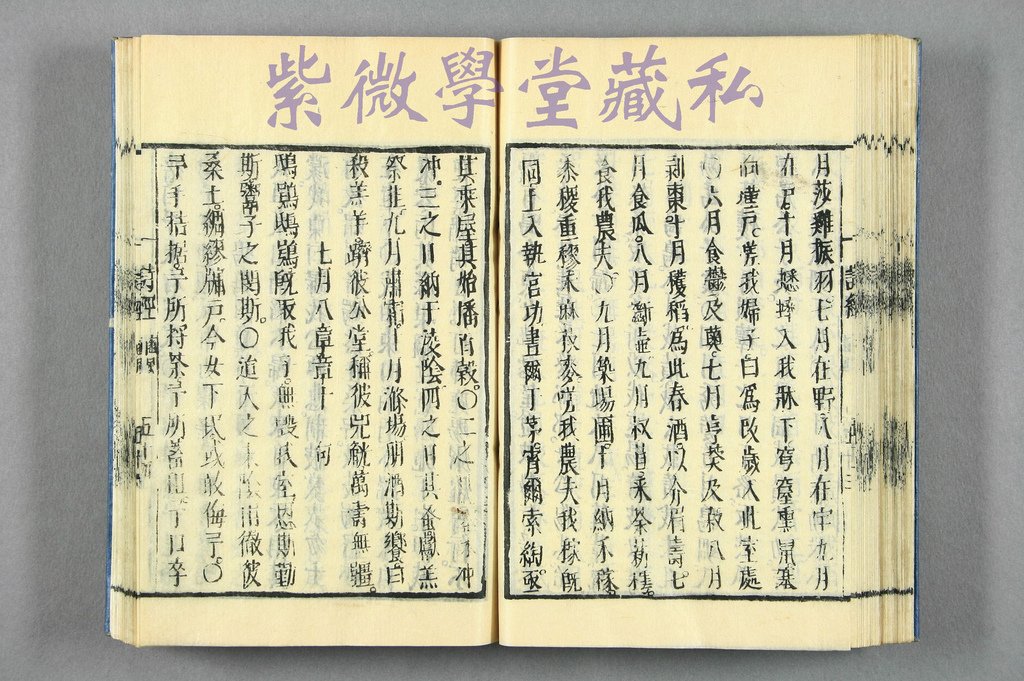 紫微學堂藏私
詩經
月莎雞振羽七月在野八月在宇九月
在戸。十月蟋蟀入我牀下穹窒熏鼠塞
向墐戸。嗟我婦子曰為改歲入此室處
○六月食鬱及薁。七月亨葵及菽八月
剥棗。十月穫稻為此春酒。以介眉壽七
月食瓜。八月斷壺九月叔苴。采荼薪樗。
食我農夫○九月築場圃。十月納禾稼
黍稷重穋禾麻菽麥嗟我農夫我稼既
同上入執宮功晝爾于茅。宵爾索綯。亟
其乘屋其始播百穀。○二之日冲
冲。三之日納于凌陰四之日其蚤獻羔
祭韭九月肅霜。十月滌場朋酒斯饗曰
殺羔羊躋彼公堂稱彼兕觥萬壽無疆。
七月八章章十句
鴟鴞鴟鴞既取我子。無毀我室恩斯勤
斯鬻子之閔斯。○迨天之未陰雨徹彼
桑土。綢繆牖戸。今女下民或敢侮予。○
予手拮据。予所捋荼予所蓄租。予口卒
詩經